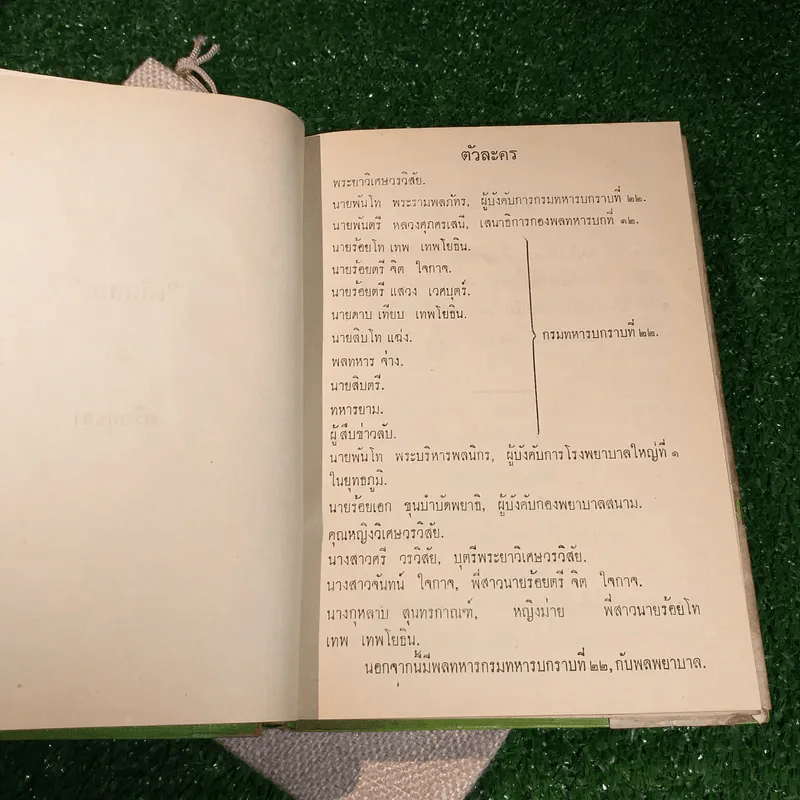 ตัวละคร
พระยาวิเศษวรวิสัย.
นายพันโท พระรามพลภัทร, ผู้บังคับการกรมทหารบกราบที่ ๒๒.
นายพันตรี หลวงศุภศรเสนี, เสนาธิการกองพลทหารบกที่ ๑๒.
นายร้อยโท เทพ เทพโยธิน.
นายร้อยตรี จิต ใจกาจ.
นายร้อยตรี แสวง เวศบุตร์.
นายดาบ เทียบ เทพโยธิน.
นายสิบโท แฉ่ง.
กรมทหารบกราบที่ ๒๒.
พลทหาร จ่าง.
นายสิบตรี.
ทหารยาม.
ผู้สืบข่าวลับ.
นายพันโท พระบริหารพลนิกร, ผู้บังคับการโรงพยาบาลใหญ่ที่ ๑
ในยุทธภูมิ.
นายร้อยเอก ขุนบำบัดพยาธิ, ผู้บังคับกองพยาบาลสนาม.
คุณหญิงวิเศษวรวิสัย.
นางสาวศรี วรวิสัย, บุตรีพระยาวิเศษวรวิสัย.
นางสาวจันทน์ ใจกาจ, พี่สาวนายร้อยตรี จิต ใจกาจ.
นางกุหลาบ สุนทรกาณฑ์, หญิงม่าย พี่สาวนายร้อยโท
เทพ เทพโยธิน.
นอกจากนี้มีพลทหารกรมทหารบกราบที่ ๒๒, กับพลพยาบาล.